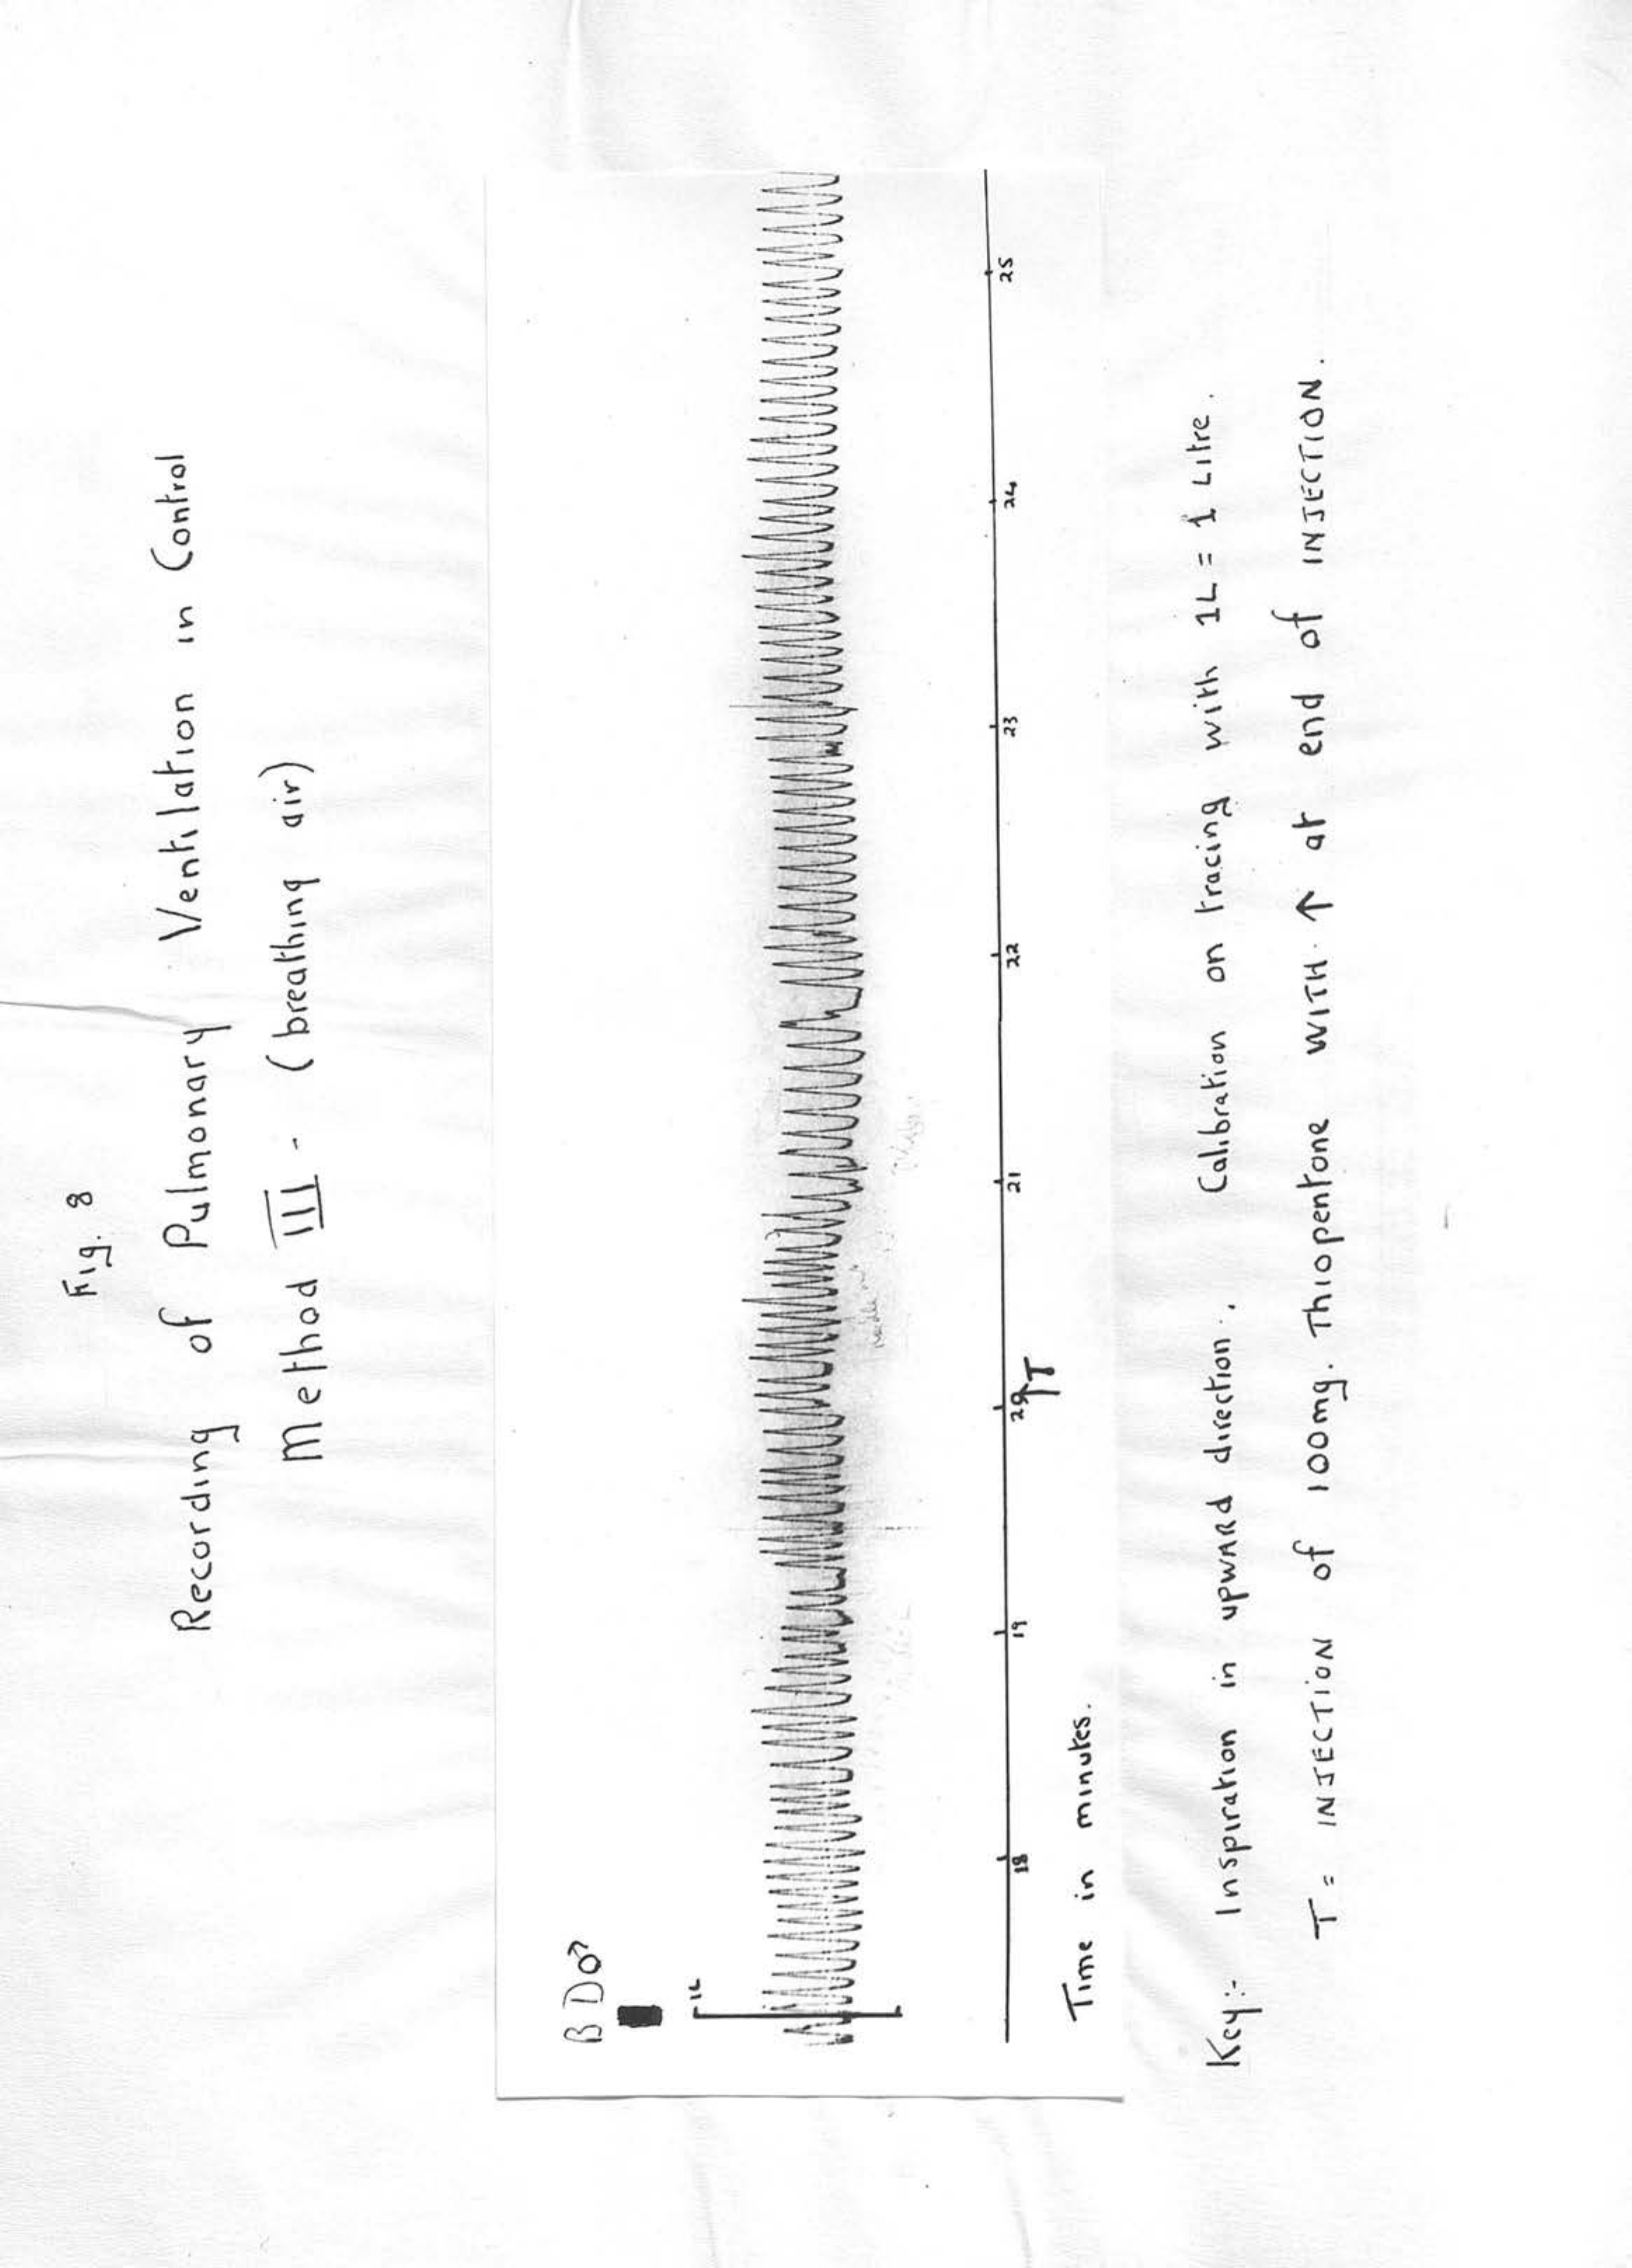 Fig. 8
Recording of Pulmonary Ventilation in Control
Method III - (breathing air)
B D ♂
1L
18 19 20 21 22 23 24 25
↑T
Time in minutes.
Key:- Inspiration in upward direction. Calibration on tracing with 1L = 1 Litre.
T = INJECTION of 100mg. Thiopentone WITH ↑ at end of INJECTION.